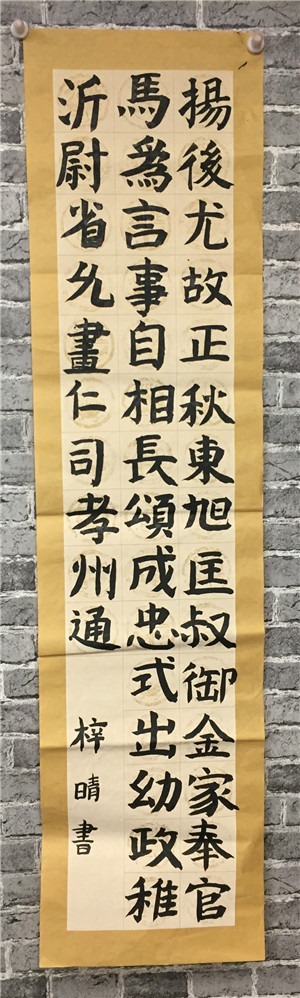 揚後尤故正秋東旭匡叔御金家奉官
馬為言事自相長頌成忠式出幼政稚
沂尉省允畫仁司孝州通
梓晴書